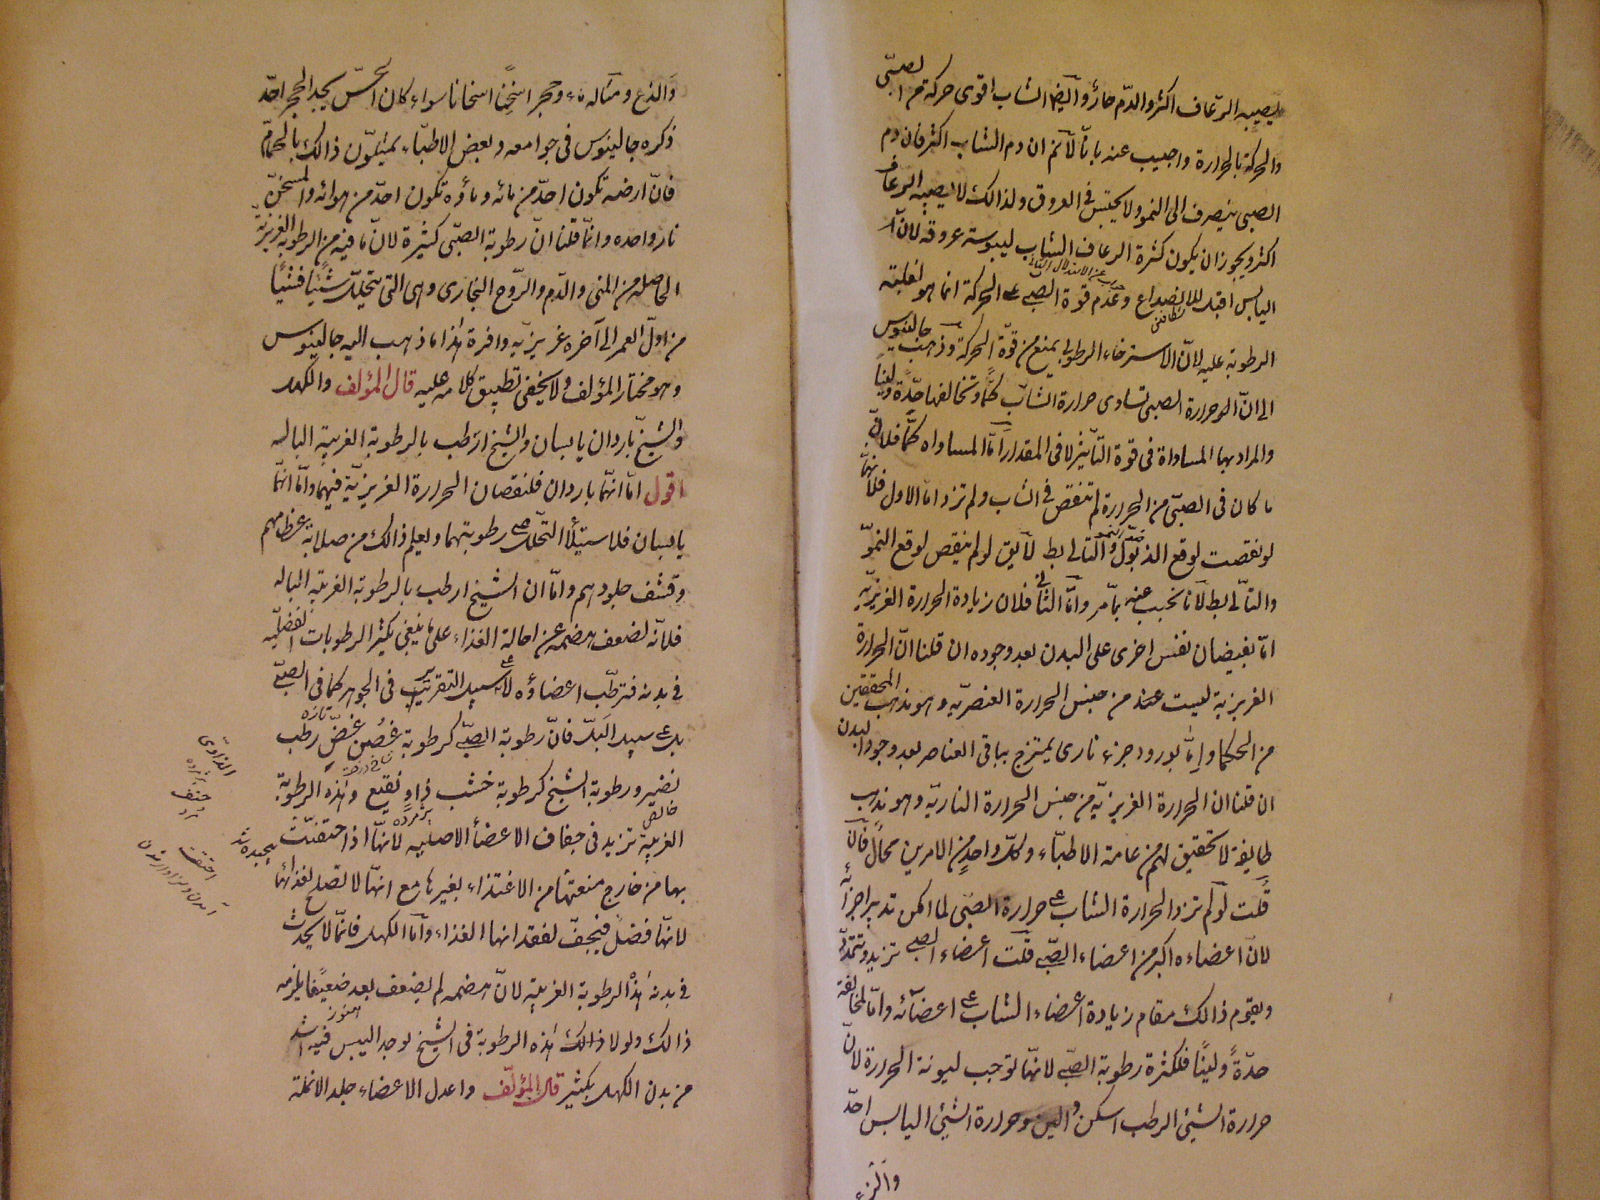 يصيبه الرعاف اكثر والدم حارّ وايضا الشاب اقوى حركة من الصبىّ
والحركة بالحرارة واجيب عنه بانّا لانم ان دم الشاب اكثر فان دم
الصبى ينصرف الى النمو ولا يحتبس فى العروق ولذالك لا يصيبه الرعاف
اكثر ويجوز ان يكون كثرة الرعاف الشاب ليبوسة عروقه لانّ
اليابس اقبل للانصداع وعدم قوة الصبى على الحركة انما هو لغلبة
الرطوبة عليه لانّ الاسترخاء الرطوبى يمنع من قوّة الحركة وذهب جالينوس
الى انّ حرارة الصبى تساوى حرارة الشابّ كمًّا وتخالفها حدّة ولينًا
والمراد بها المساواة فى قوة التأثير لا فى المقدار امّا المساواه كمًّا فلانّ
ما كان فى الصبىّ من الحرارة لم تنقص فى الشاب ولم تزد امّا الاول فلانّها
لو نقصت لوقع الذبول والتالى بط لايق لو لم ينقص لوقع النموّ
والتالى بط لانا نجيب عنه بما مر وامّا الثانى فلان زيادة الحرارة الغريزيّة
امّا بفيضان نفس اخرى على البدن بعد وجوده ان قلنا انّ الحرارة
الغريزية ليست عنده من جنس الحرارة العنصريّه وهو مذهب المحققين
من الحكما وامّا بورود جزء نارى يمتزج بباقى العناصر بعد وجود البدن
ان قلنا ان الحرارة الغريزيّة من جنس الحرارة الناريّه وهو مذهب
طايفة لا تحقيق لهم من عامة الاطبّاء وكلّ واحدٍ من الامرين محال فان
قلت لو لم تزد الحرارة الشاب على حرارة الصبى لما امكن تدبير اجزائه
لانّ اعضاءه اكبر من اعضاء الصبى قلت اعضاء الصبى تزيد وتتمدّد
ويقوم ذالك مقام زيادة اعضاء الشاب على اعضائه وامّا المخالفة
حدّةً ولينًا فلكثرة رطوبة الصبى لانها توجب ليونة الحرارة لانّ
حرارة الشيئ الرطب اسكن والين وحرارة الشيئ اليابس احدّ
والذع
والذع ومثاله ماء وحجر اسخنا اسخانا سواء كان الحسّ يجد الحجر احدّ
ذكره جالينوس فى جوامعه وبعض الاطبّاء يمثلون ذالك بالحمّام
فانّ ارضه تكون احدّ من مائه وماؤه تكون احدّ من هوائه والمسخن
نار واحده وانّما قلنا انّ رطوبة الصبّى كثيرة لانّ ما فيه من الرطوبة الغريزيّة
الحاصله من المنى والدم والروح البخارى وهى التى تتحلل شيئًا فشيئًا
من اول العمر الى آخره غريزيه وافرة هذا ما ذهب اليه جالينوس
وهو مختار المؤلف ولا يخفى تطبيق كلامه عليه قال المؤلف والكهل
والشيخ باردان يابسان والشيخ ارطب بالرطوبة الغريبة البالّه
اقول امّا انّهما باردان فلنقصان الحرارة الغريزيّة فيهما وامّا انهما
يابسان فلاستيلاء التحلل على رطوبتهما ويعلم ذالك من صلابة عظامهم
وقشف جلودهم وامّا ان الشيخ ارطب بالرطوبة الغريبه البالّه
فلانّه لضعف هضمه عن احالة الغذاء على ما ينبغى يكثر الرطوبات الفضليّه
فى بدنه فترطّب اعضاؤه لا على سبيل التقرير فى الجوهر كما فى الصبى
بل على سبيل البلّ فانّ رطوبة الصبى كرطوبة غصن غضّ رطب
نضير ورطوبة الشيخ كرطوبة خشب ذاو نقيع وهذه الرطوبة
الغريبة تزيد فى جفاف الاعضاء الاصليه لانّها اذا احتفت
بها من خارج منعتها من الاغتذاء بغيرها مع انّها لا تصلح لغذائها
لانّها فضل فيجفّ لفقدانها الغذاء وامّا الكهل فانّما لا يحدث
فى بدنه هذه الرطوبة الغريبه لانّ هضمه لم يضعف بعد ضعيفا يلزمه
ذالك ولولا ذالك هذه الرطوبة فى الشيخ لوجد اليبس فيه اشد
من بدن الكهل بكثير قال المؤلّف واعدل الاعضاء جلد الانملة